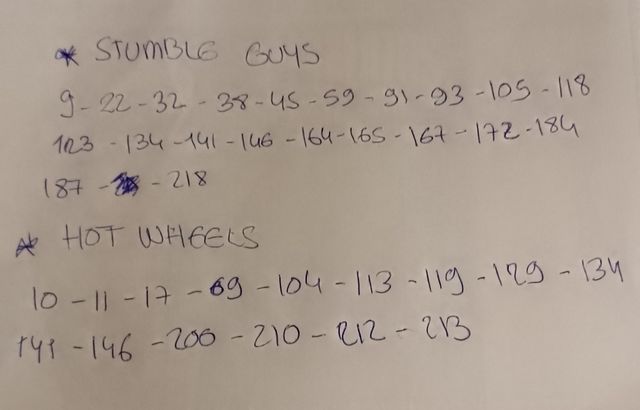 * STUMBLE GUYS
9 - 22 - 32 - 38 - 45 - 59 - 91 - 93 - 105 - 118
123 - 134 - 141 - 146 - 164 - 165 - 167 - 172 - 184
187 - - 218
* HOT WHEELS
10 - 11 - 17 - 69 - 104 - 113 - 119 - 129 - 134
141 - 146 - 200 - 210 - 212 - 213